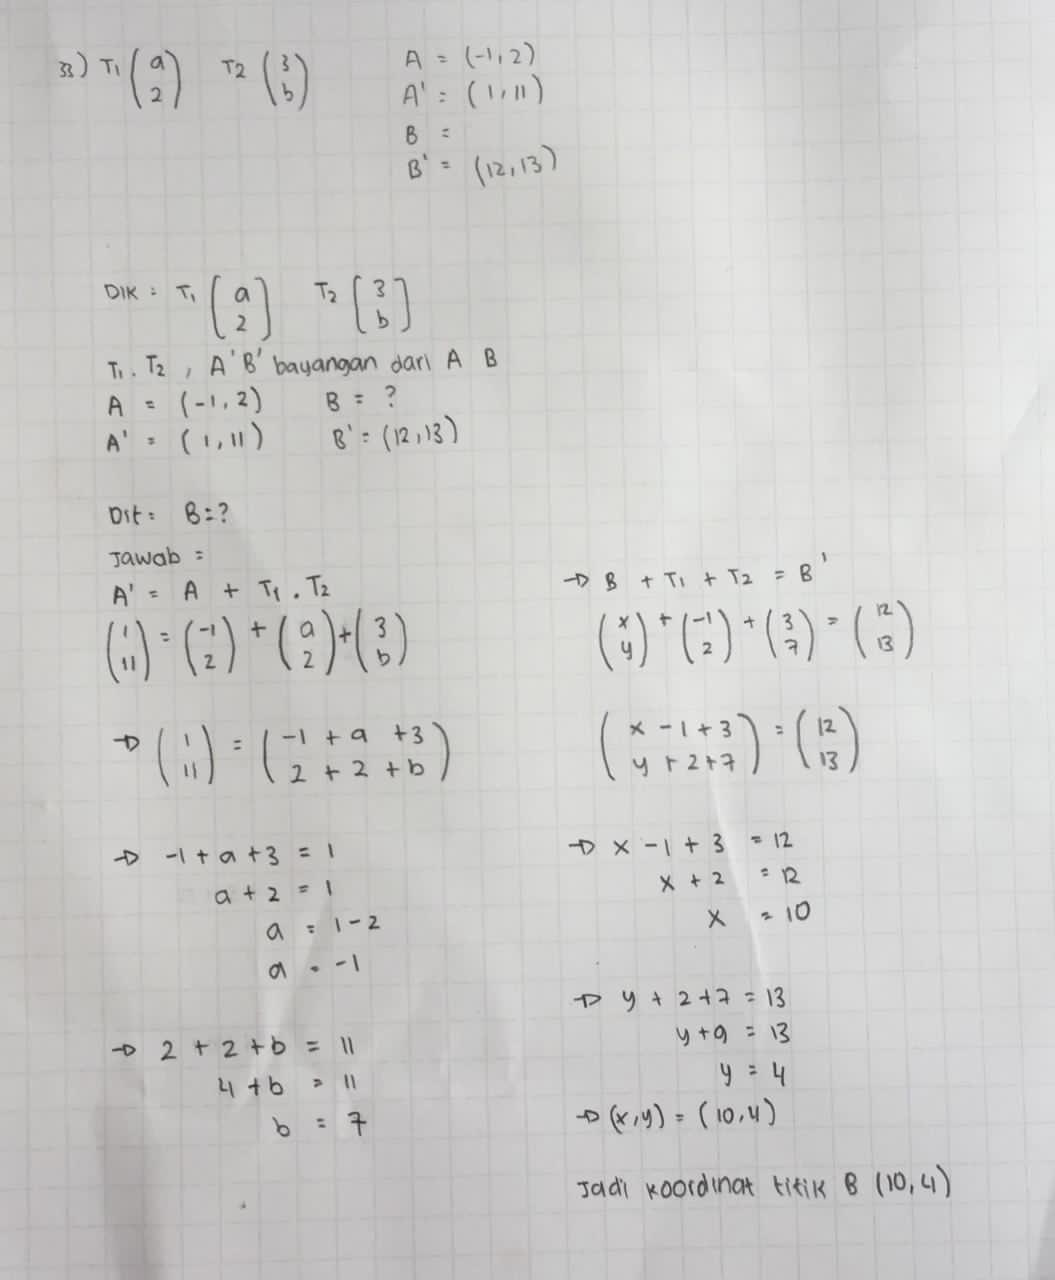 33) T1 (a 2) T2 (3 b) A = (-1,2)
A' = (1,11)
B =
B' = (12,13)
DIK = T1 [a 2] T2 [3 b]
T1 . T2 , A'B' bayangan dari A B
A = (-1,2) B = ?
A' = (1,11) B' = (12,13)
Dit = B = ?
Jawab =
A' = A + T1 . T2
(1 11) = (-1 2) + (a 2) + (3 b)
→ (1 11) = (-1 + a + 3 2 + 2 + b)
→ -1 + a + 3 = 1
a + 2 = 1
a = 1 - 2
a = -1
→ 2 + 2 + b = 11
4 + b = 11
b = 7
→ B + T1 + T2 = B'
(x y) + (-1 2) + (3 7) = (12 13)
(x - 1 + 3 y + 2 + 7) = (12 13)
→ x - 1 + 3 = 12
x + 2 = 12
x = 10
→ y + 2 + 7 = 13
y + 9 = 13
y = 4
→ (x,y) = (10,4)
Jadi koordinat titik B (10,4)